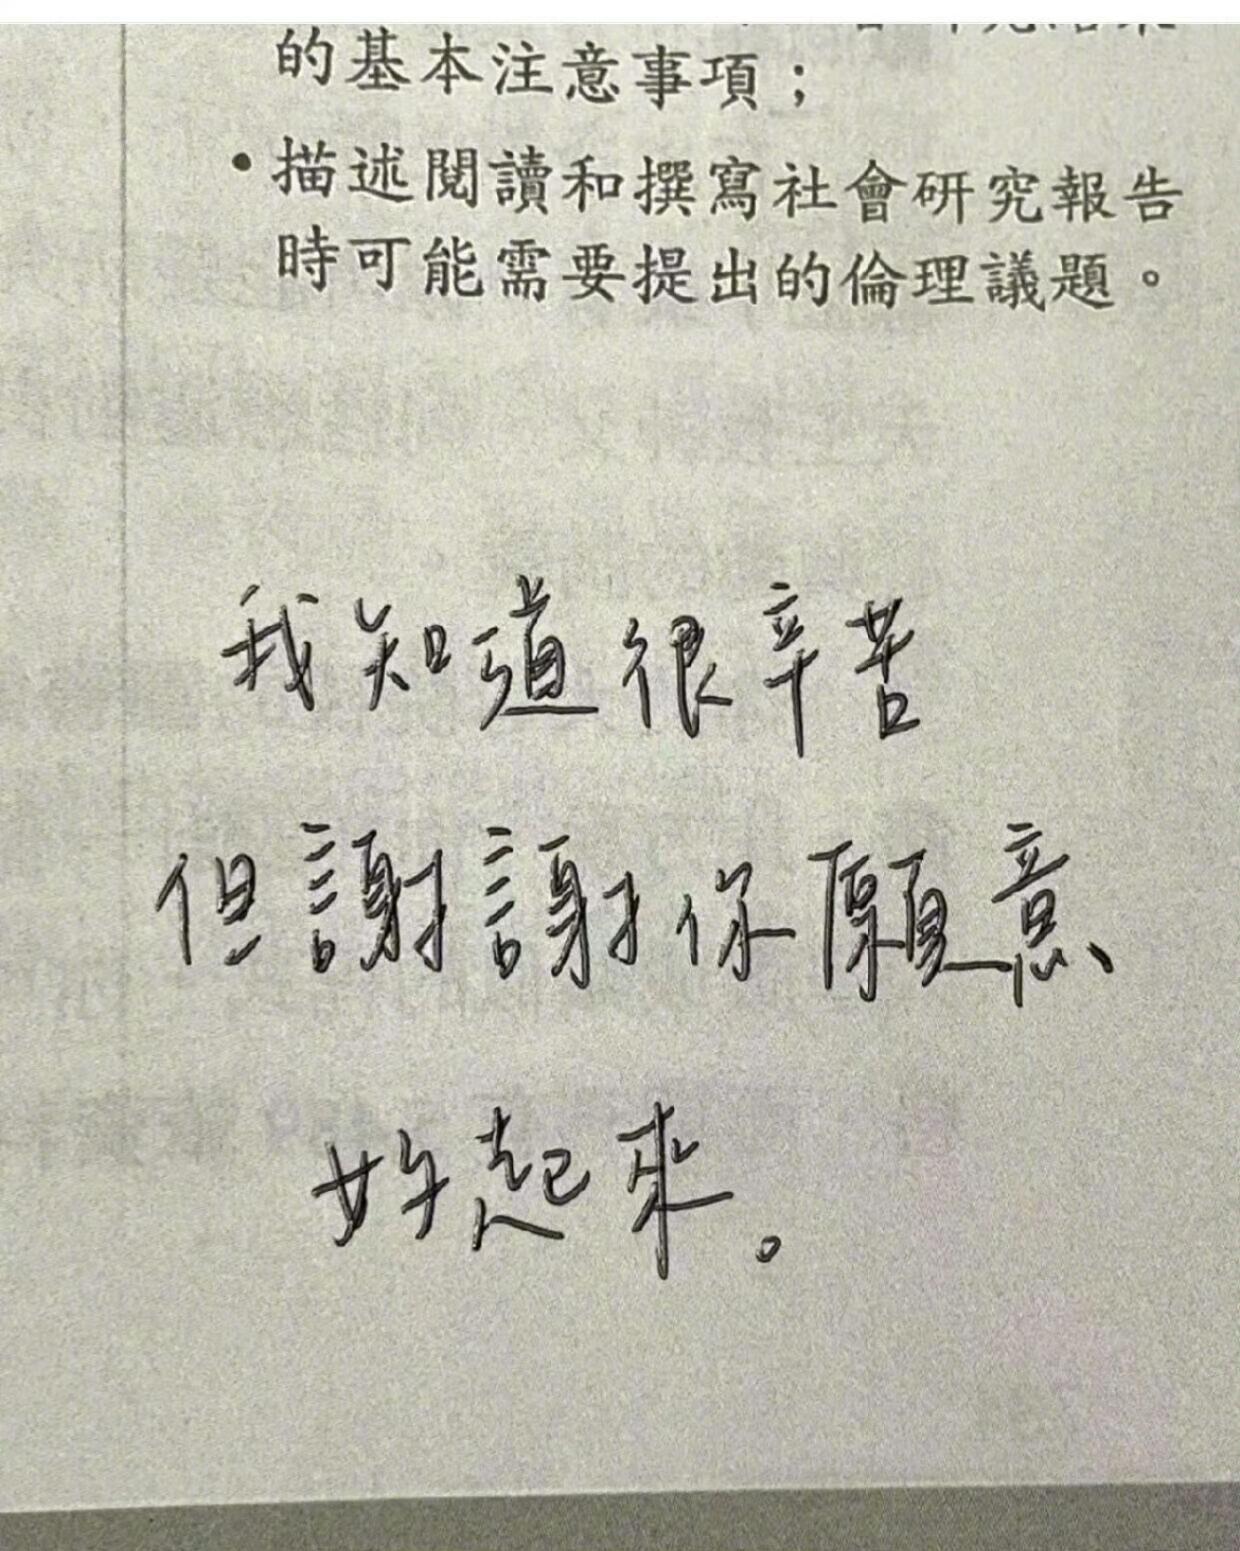 的基本注意事項；
•描述閱讀和撰寫社會研究報告
時可能需要提出的倫理議題。
我知道很辛苦
但謝謝你願意
好起來。